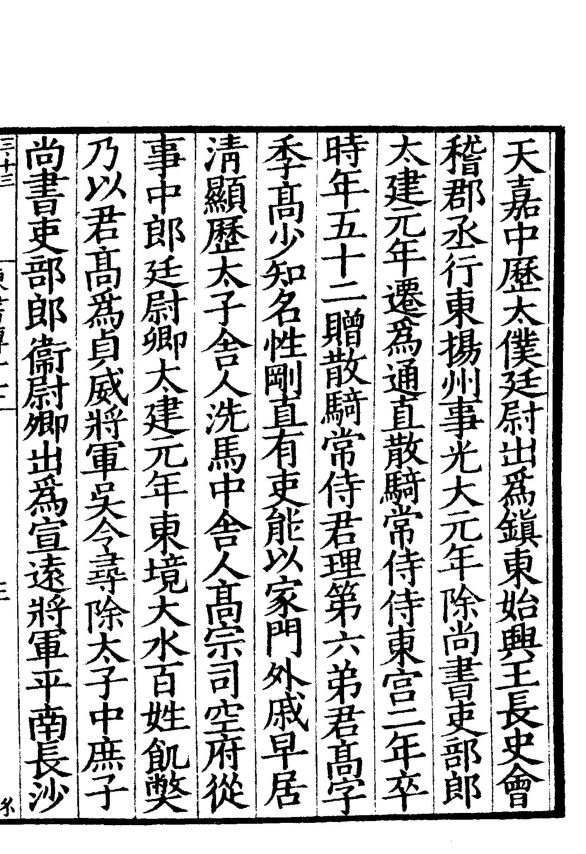 天嘉中歷太僕廷尉出爲鎮東始興王長史會
稽郡丞行東揚州事光大元年除尚書吏部郎
太建元年遷爲通直散騎常侍侍東宫二年卒
時年五十二贈散騎常侍君理第六弟君髙字
季髙少知名性剛直有吏能以家門外戚早居
清顯歷太子舎人洗馬中舎人髙宗司空府從
事中郎廷尉卿太建元年東境大水百姓飢弊
乃以君髙爲貞威將軍吳令尋除太子中庶子
尚書吏部郎衞尉卿出爲宣遠將軍平南長沙
三十三